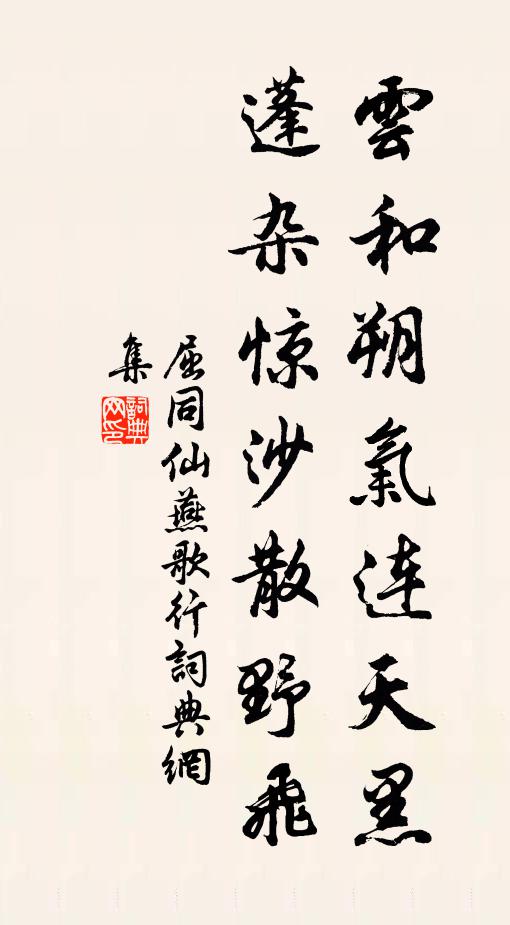 雲和朔氣連天黑
蓬杂惊沙散野飛
屈同仙燕歌行詞典網
集
詞典網印